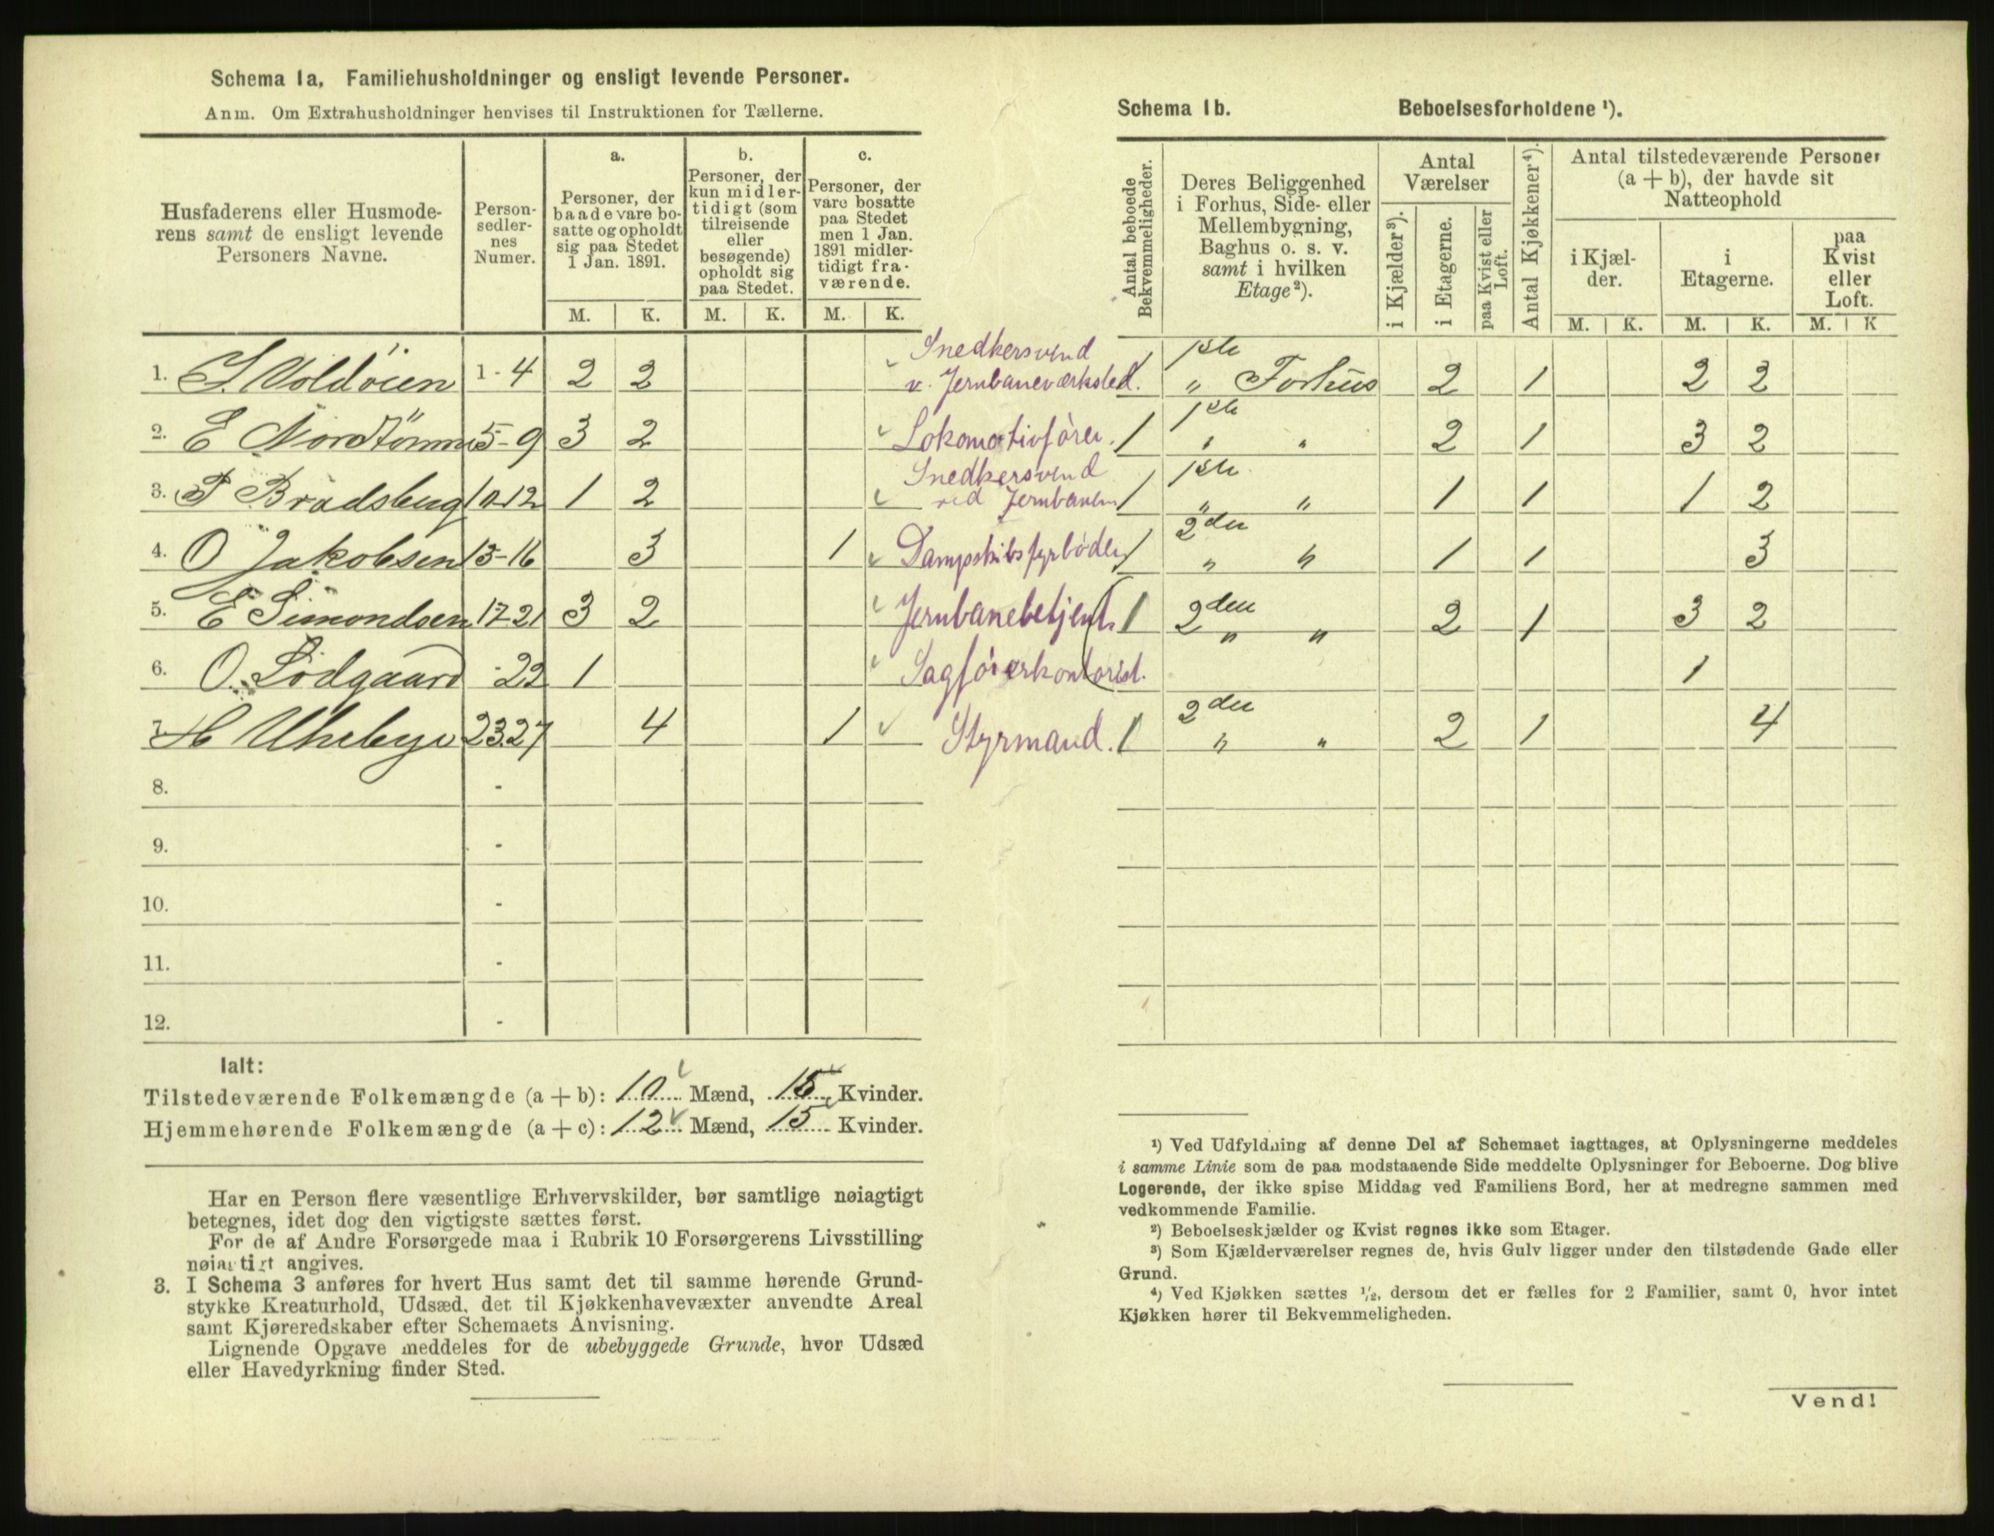 Schema 1a, Familiehusholdninger og ensligt levende Personer.
Anm. Om Extrahusholdninger henvises til Instruktionen for Tællerne.
Husfaderens eller Husmode-
rens samt de ensligt levende
Personers Navne.
Person-
sedler-
nes
Numer.
a.
Personer, der
baade vare bo-
satte og opholdt
sig paa Stedet
1 Jan. 1891.
b.
Personer, der
kun midler-
tidigt (som
tilreisende
eller
besøgende)
opholdt sig
paa Stedet.
c.
Personer, der
vare bosatte
paa Stedet
men 1 Jan.
1891 midler-
tidigt fra-
værende.
M. K. M. K. M. K.
1. S. Voldöien 1-4 2 2 Snedkersvend
v. Jernbaneværksted.
2. E Nordtömme 5-9 3 2 Lokomotivfører.
3. P Bradsberg 10-12 1 2 Snedkersvend
ved Jernbanen
4. O Jakobsen 13-16 3 1 Dampskibsfyrbøder
5. E Simondsen 17-21 3 2 Jernbanebetjent
6. O. Lödgaard 22 1 Sagførerkontorist.
7. H 23-27 4 1 Styrmand.
8. -
9. -
10. -
11. -
12. -
Ialt:
Tilstedeværende Folkemængde (a + b): 10 Mænd, 15 Kvinder.
Hjemmehørende Folkemængde (a + c): 12 Mænd, 15 Kvinder.
Har en Person flere væsentlige Erhvervskilder, bør samtlige nøiagtigt
betegnes, idet dog den vigtigste sættes først.
For de af Andre Forsørgede maa i Rubrik 10 Forsørgerens Livsstilling
nøiagtigt angives.
3. I Schema 3 anføres for hvert Hus samt det til samme hørende Grund-
stykke Kreaturhold, Udsæd, det til Kjøkkenhavevæxter anvendte Areal
samt Kjøreredskaber efter Schemaets Anvisning.
Lignende Opgave meddeles for de ubebyggede Grunde, hvor Udsæd
eller Havedyrkning finder Sted.
Schema 1b. Beboelsesforholdene ¹).
Antal beboede
Bekvemmeligheder.
Deres Beliggenhed
i Forhus, Side- eller
Mellembygning,
Baghus o. s. v.
samt i hvilken
Etage²).
Antal
Værelser
i Kjælder³).
i Etagerne.
paa Kvist eller
Loft.
Antal Kjøkkener⁴).
Antal tilstedeværende Personer
(a + b), der havde sit
Natteophold
i Kjæl-
der.
i
Etagerne.
paa
Kvist
eller
Loft.
M. K. M. K. M. K
1 1ste " Forhus 2 1 2 2
1 1ste " " 2 1 3 2
1 1ste " " 1 1 1 2
1 2den " " 1 1 3
1 2den " " 2 1 3 2
1
1 2den " " 2 1 4
¹) Ved Udfyldning af denne Del af Schemaet iagttages, at Oplysningerne meddeles
i samme Linie som de paa modstaaende Side meddelte Oplysninger for Beboerne. Dog blive
Logerende, der ikke spise Middag ved Familiens Bord, her at medregne sammen med
vedkommende Familie.
²) Beboelseskjælder og Kvist regnes ikke som Etager.
³) Som Kjælderværelser regnes de, hvis Gulv ligger under den tilstødende Gade eller
Grund.
⁴) Ved Kjøkken sættes ½, dersom det er fælles for 2 Familier, samt 0, hvor intet
Kjøkken hører til Bekvemmeligheden.
Vend!